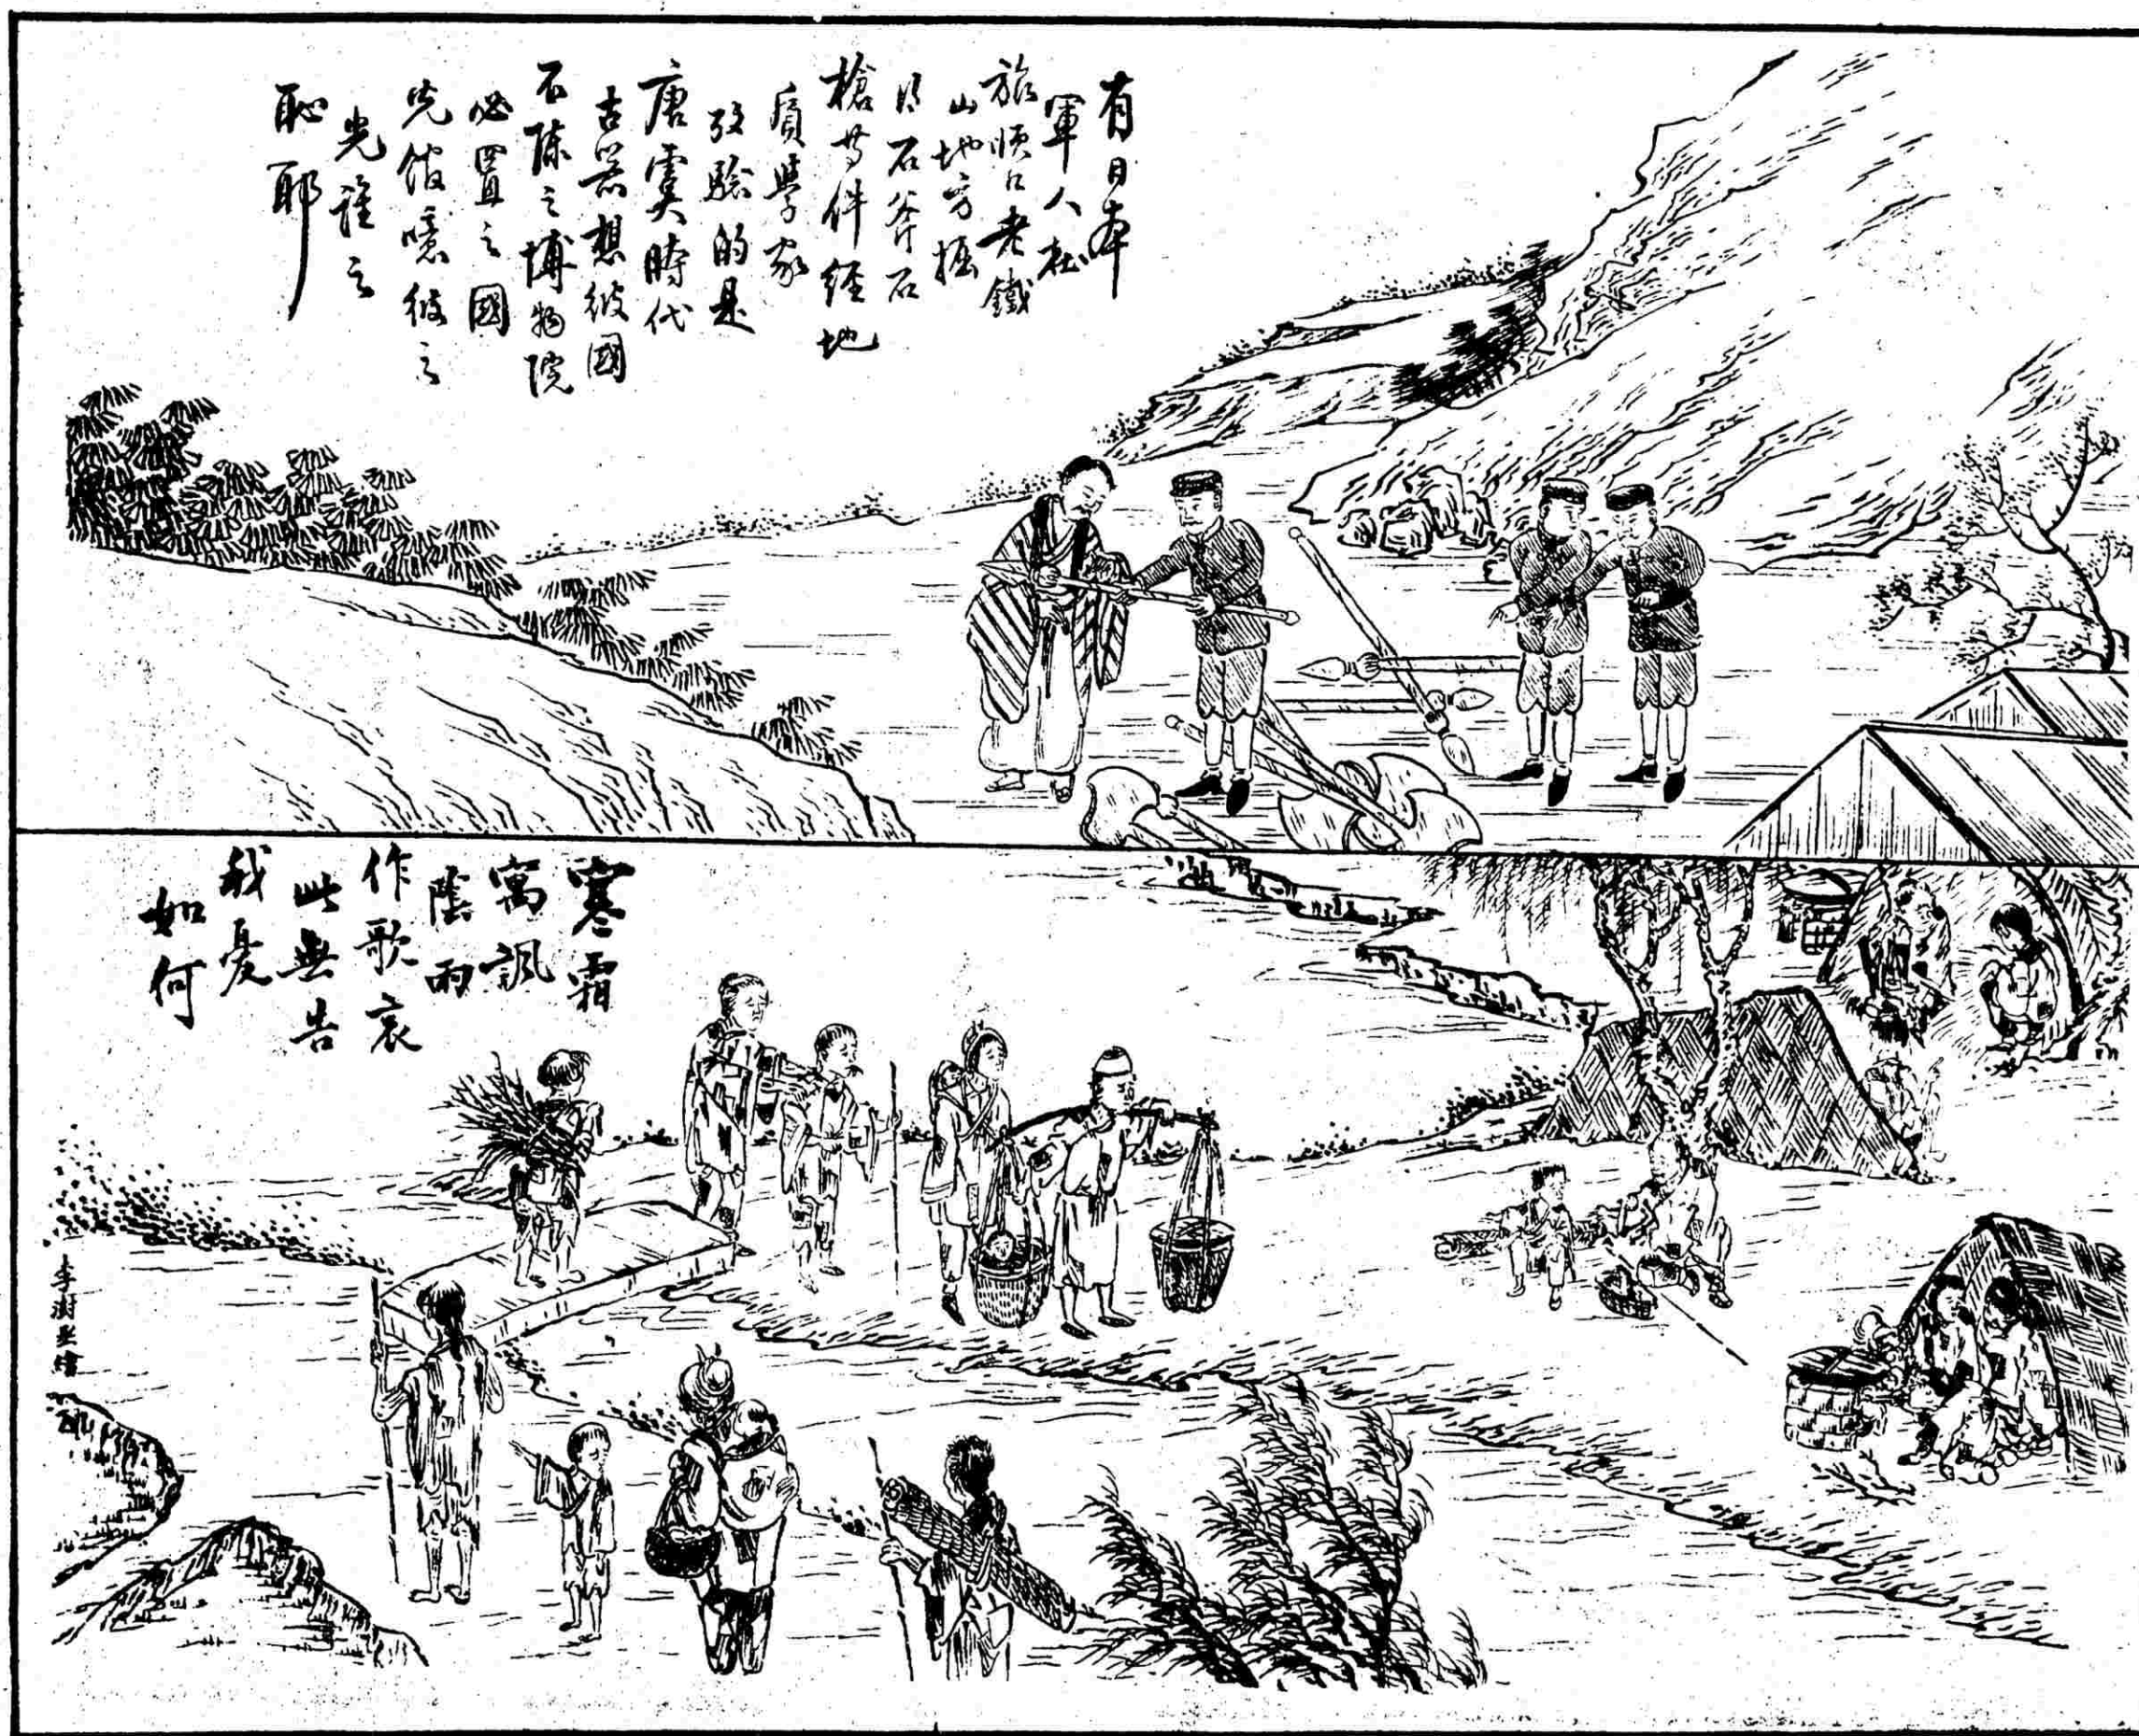 有日本
軍人在
旅順口老鐵
山地方掘
得石斧石
槍等件經地
質學家
攷驗的是
唐虞時代
古器想彼國
不陳之博物院
必置之國
光館噫彼之
光誰之
恥耶
寒霜
寓諷
陰雨
作歌哀
此無告
我憂
如何
李澍丞繪